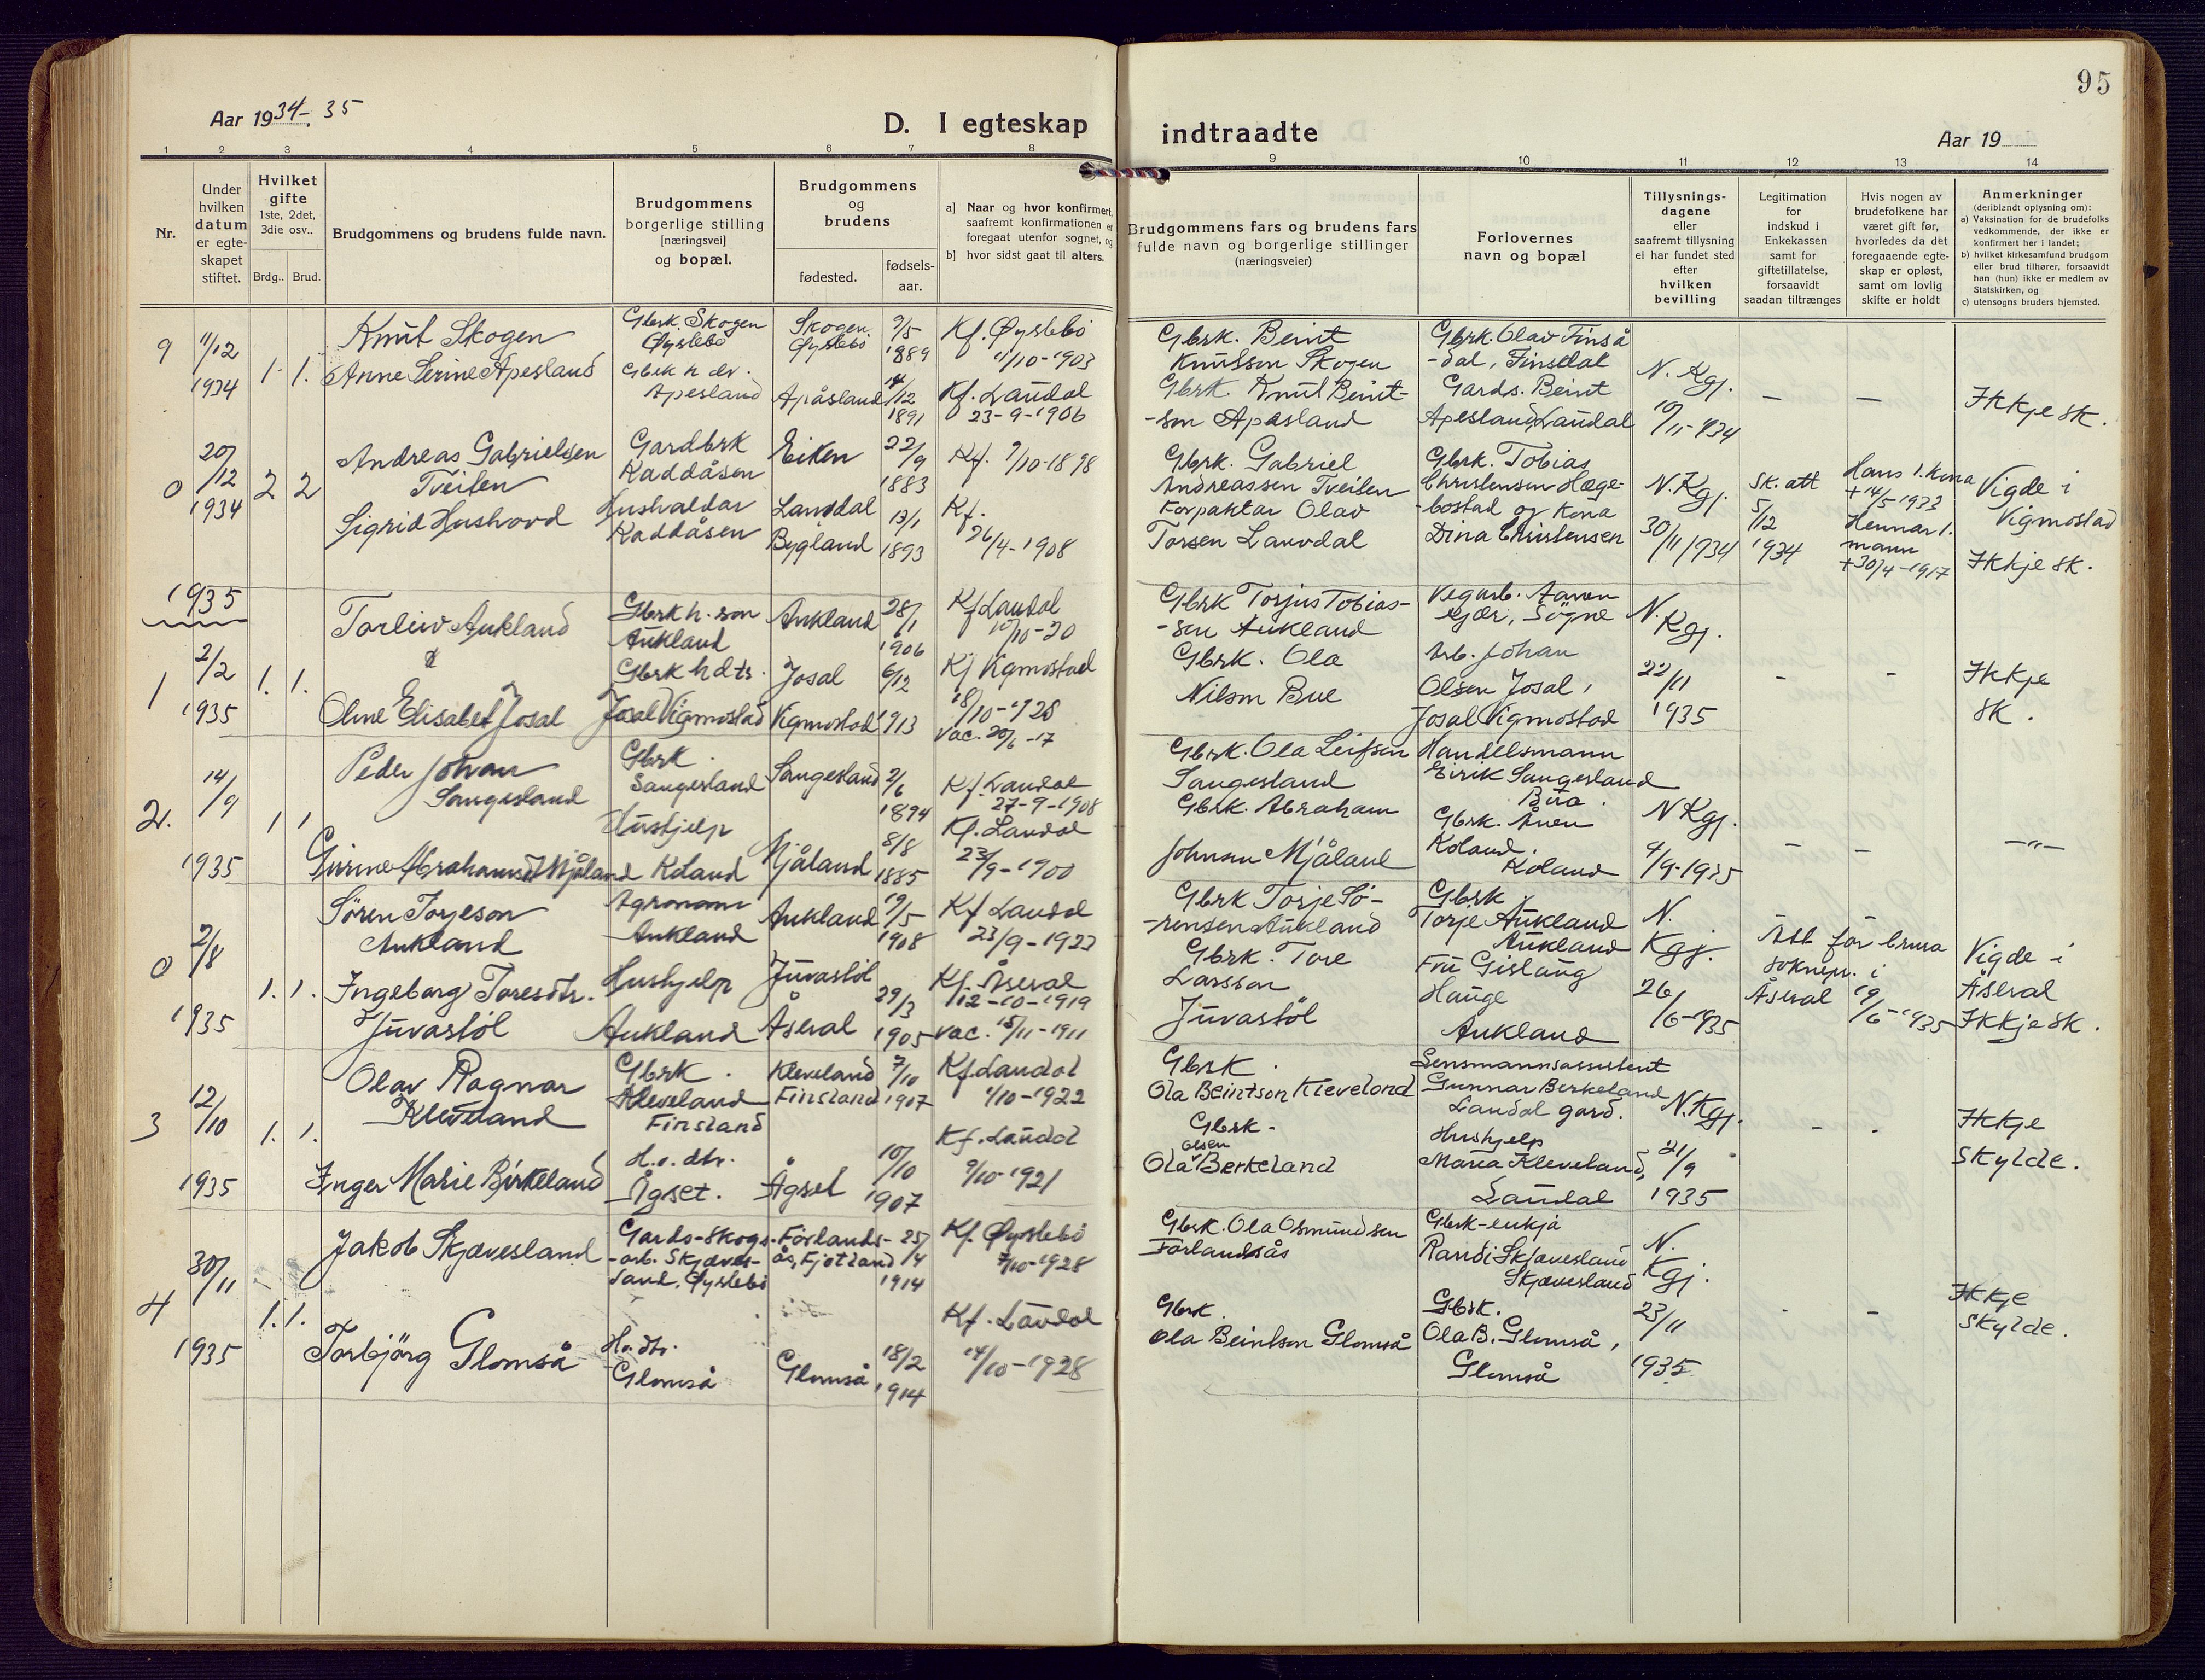 95
Aar 1934-35
D. I egteskap
indtraadte
Aar 19
1 2 3 4 5 6 7 8 9 10 11 12 13 14
Nr.
Under
hvilken
datum
er egte-
skapet
stiftet.
Hvilket
gifte
1ste, 2det,
3die osv..
Brdg.. Brud.
Brudgommens og brudens fulde navn.
Brudgommens
borgerlige stilling
[næringsvei]
og bopæl.
Brudgommens
og
brudens
fødested.
fødsels-
aar.
a] Naar og hvor konfirmert,
saafremt konfirmationen er
foregaat utenfor sognet, og
b] hvor sidst gaat til alters.
Brudgommens fars og brudens fars
fulde navn og borgerlige stillinger
(næringsveier)
Forlovernes
navn og bopæl
Tillysnings-
dagene
eller
saafremt tillysning
ei har fundet sted
efter
hvilken
bevilling
Legitimation
for
indskud i
Enkekassen
samt for
giftetillatelse,
forsaavidt
saadan tiltrænges
Hvis nogen av
brudefolkene har
været gift før,
hvorledes da det
foregaaende egte-
skap er opløst,
samt om lovlig
skifte er holdt
Anmerkninger
(deriblandt oplysning om):
a) Vaksination for de brudefolks
vedkommende, der ikke er
konfirmert her i landet;
b) hvilket kirkesamfund brudgom
eller brud tilhører, forsaavidt
han (hun) ikke er medlem av
Statskirken, og
c) utensogns bruders hjemsted.
9
11/12
1934
1. 1.
Knut Skogen
Anne Serine Apesland
Gbrk. Skogen
Øyslebø
Gbrk h dtr.
Apesland
Skogen
Øyslebö
Apåsland
9/5
1889
14/12
1891
Kf. Øyslebö
11/10-1903
Kf. Laudal
23-9-1906
Gbrk. Beint
Knutson Skogen
Gbrk Knut Beint-
-son Apåsland
Gbrk. Olav Finså
-dal, Finsdal
Gards. Beint
Apesland, Laudal
N. Kgj.
10/11-934
— —
Ikkje sk.
0
20/12
1934
2 2
Andreas Gabrielsen
Tveiten
Sigrid Hushovd
Gardbrk
Kaddåsen
Hushaldar
Kaddåsen
Eiken
Landdal
Bygland
22/9
1883
13/1
1893
Kf. 9/10-1898
Kf.
26/4-1908
Gbrk. Gabriel
Andreassen Tveiten
Forpaktar Olav
Torsen Lauvdal
Gbrk. Tobias
Christensen Hæge-
-bostad og kona
Dina Christensen
N. Kgj.
30/11 1934
Sk. att
5/12
1934
Hans 1. kona
+ 14/5-1933
Hennar 1.
mann
+ 30/4-1917
Vigde i
Vigmostad
Ikkje sk.
1935
1
2/2
1935
1. 1.
Torleiv Aukland
&
Oline Elisabet Josal
Gbrk h. son
Aukland
Gbrk h dtr.
Josal Vigmostad
Aukland
Josal
Vigmostad
28/1
1906
6/12
1913
Kf Laudal
10/10-20
Kf Vigmostad
18/10-1928
Vac. 20/6-17
Gbrk Torjus Tobias-
-sen Aukland
Gbrk. Ola
Nilsen Bue
Vegarb. Aanen
Kjær, Søgne
Arb. Johan
Olsen Josal,
Josal Vigmostad
N.
Kgj.
22/11
1935
- -
Ikkje
sk.
2.
14/9
1935
1 1
Peder Johan
Sangesland
Gurine Abrahamsd Mjåland
Gbrk.
Sangesland
Hushjelp
Koland
Sangesland
Mjåland
2/6
1894
8/8
1885
Kf. Laudal
27-9-1908
Kf. Laudal
23/9-1900
Gbrk. Ola Leifsen
Sangesland
Gbrk. Abraham
Johnsen Mjåland
Handelsmann
Eirik Sangesland
Bua.
Gbrk. Ånen
Koland.
Koland
N Kgj.
4/9-1935
— —
—"—
0
2/8
1935
1. 1.
Sören Torjeson
Aukland
Ingeborg Toresdtr.
Juvastöl
Agronom
Aukland
Hushjelp
Aukland
Aukland
Juvastöl
Åseral
19/5
1908
29/3
1905
Kf Laudal
23/9-1923
Kf. Åseral
12-10-1919
Vac. 15/11-1911
Gbrk Torje Sö-
-rensen Aukland
Gbrk. Tore
Larsson
Juvastöl
Gbrk
Torje Aukland
Aukland
Fru Gislaug
Hauge
Aukland
N.
Kgj.
26/6-1935
Att för brura
soknepr. i
Åseral 19/6-1935
Vigde i
Åseral
Ikkje sk.
3
12/10
1935
1. 1.
Olav Ragnar
Kleveland
Inger Marie Birkeland
Gbrk.
Kleveland
Finsland
H.v. dtr.
Ågset.
Kleveland
Finsland
Ågset
7/10
1907
10/10
1907
Kf. Laudal
1/10-1922
Kf. Laudal
9/10-1921
Gbrk.
Ola Beintson Kleveland
Gbrk-
Olsen
Ola Berkeland
Lensmannsassistent
Gunnar Berkeland
Laudal gard.
Hushjelp
Maria Kleveland,
Laudal
N. Kgj.
21/9
1935
- -
Ikkje
skylde.
4
30/11
1935
1. 1.
Jakob Skjævesland
Torbjörg Glomså
Gards-skogs-
-arb. Skjæves-
land, Øyslebø
H.v. dtr.
Glomså
Förlands-
ås, Fjotland
Glomså
25/4
1914
18/2
1914
Kf. Øyslebö
7/10-1928
Kf. Laudal
14/10-1928
Gbrk. Ola Osmundsen
Förlandsås
Gbrk.
Ola Beintson Glomså
Gbrk-enkja
Randi Skjævesland
Skjævesland
Gbrk.
Ola B. Glomså,
Glomså
N.
Kgj.
23/11
1935
- -
Ikkje
skylde.